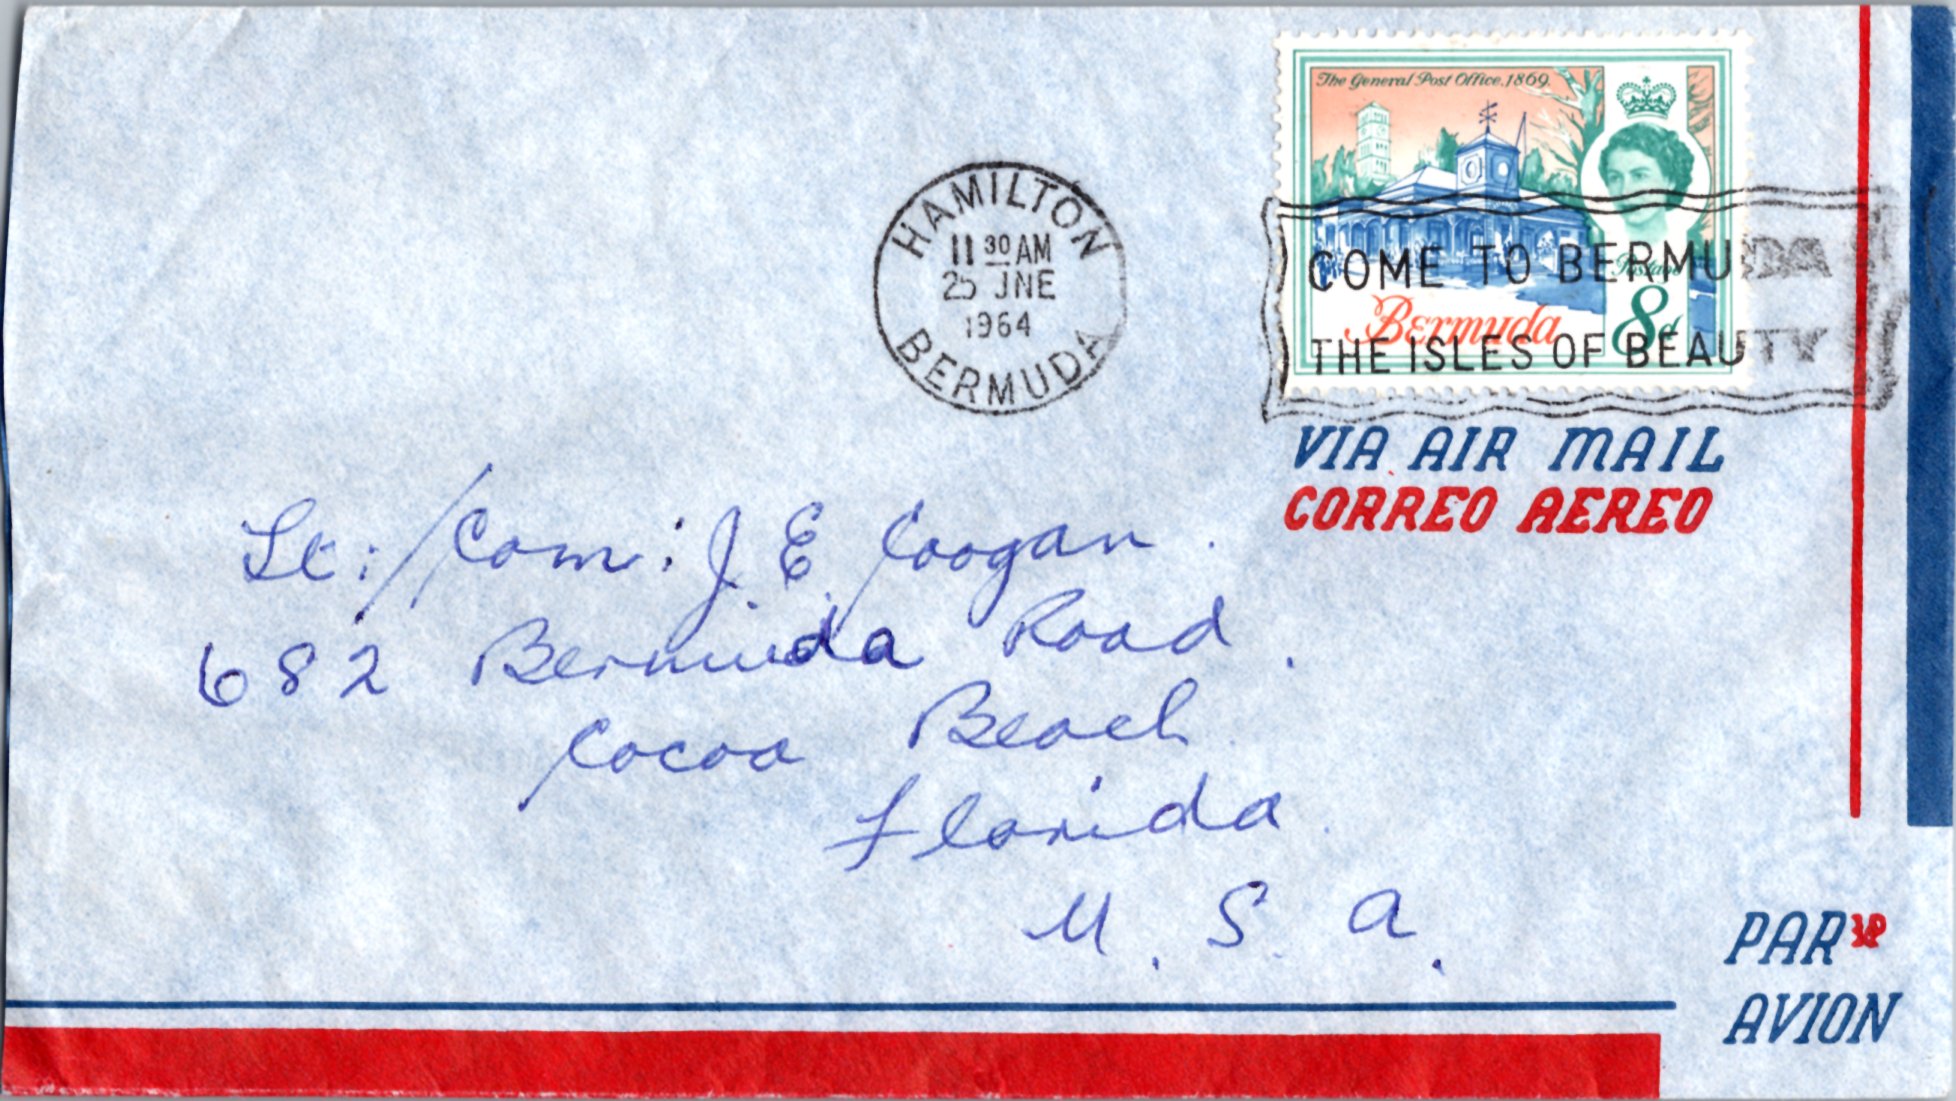 The General Post Office, 1869
HAMILTON
11 30 AM
25 JNE
1964
BERMUDA
Postage
8d
Bermuda
COME TO BERMUDA
THE ISLES OF BEAUTY
VIA AIR MAIL
CORREO AEREO
Lt:/Com: J. E Coogan.
682 Bermuda Road.
Cocoa Beach
Florida
U. S. A.
PAR
AVION